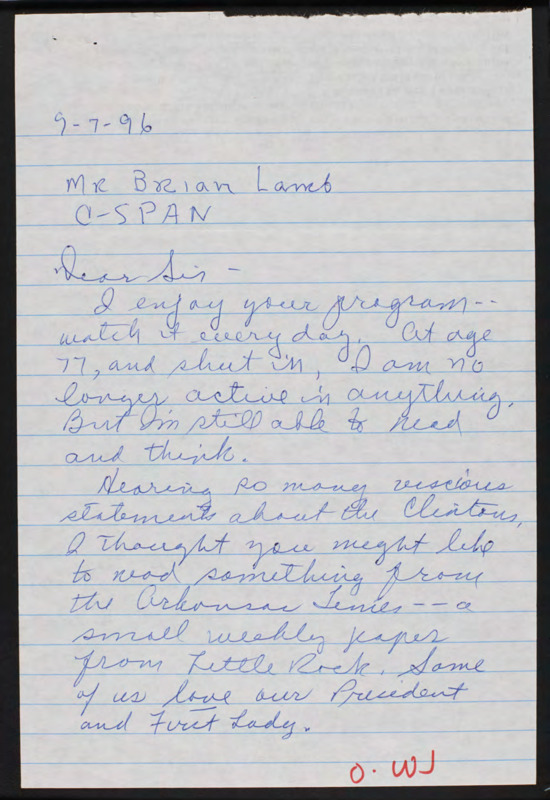 9-7-96
Mr Brian Lamb
C-SPAN
Dear Sir -
I enjoy your program --
watch it every day. At age
77, and shut in, I am no
longer active in anything.
But I'm still able to read
and think.
Hearing so many viscious
statements about the Clintons,
I thought you might like
to read something from
the Arkansas Times -- a
small weekly paper
from Little Rock. Some
of us love our President
and First Lady.
O. WJ